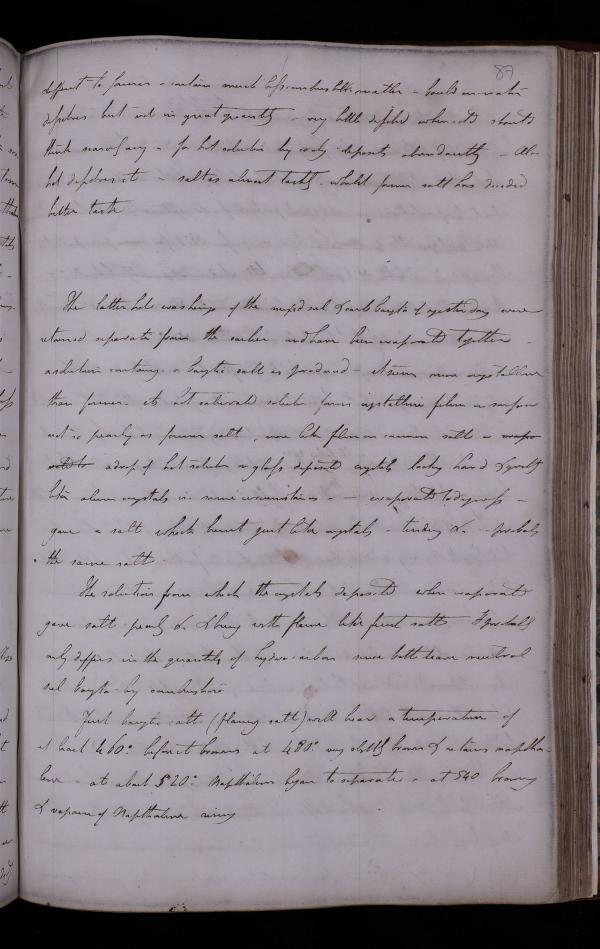 87
different to former - contains much less combustible matter - boils in water
dissolves but not in great quantity - very little dissolved when cold should
think - for hot solution by cooling deposits abundantly -
hot dissolves it - salt has almost tasteless - whilst former salt has decided
bitter taste
The latter hot washings of the mixed sul & carb baryta of yesterday were
retained separate from the earlier and have been evaporated together -
a solution containing a baryta salt is produced - It seems more crystalline
than former. its hot saturated solution forms crystalline films on surface
not so pearly as former salt, more like films on common salt -
a drop of hot solution on glass deposited crystals looking hard & gritty
like alum crystals in same circumstances - evaporated to dryness -
gave a salt which burnt just like crystals - tinder &c - probably
the same salt.
The solution from which the crystals deposited when evaporated
gave salt pearly &c & burning with flame like first salt. Probably
only differs in the quantity of hydro-carbon since both leave neutral
sul baryta by combustion
First baryta salt (flaming salt) will bear a temperature of
at least 460° before it browns at 480° very slightly brown & retains naptha-
line - at about 520° Napthaline began to separate - at 540 browning
& vapour of Napthaline rising